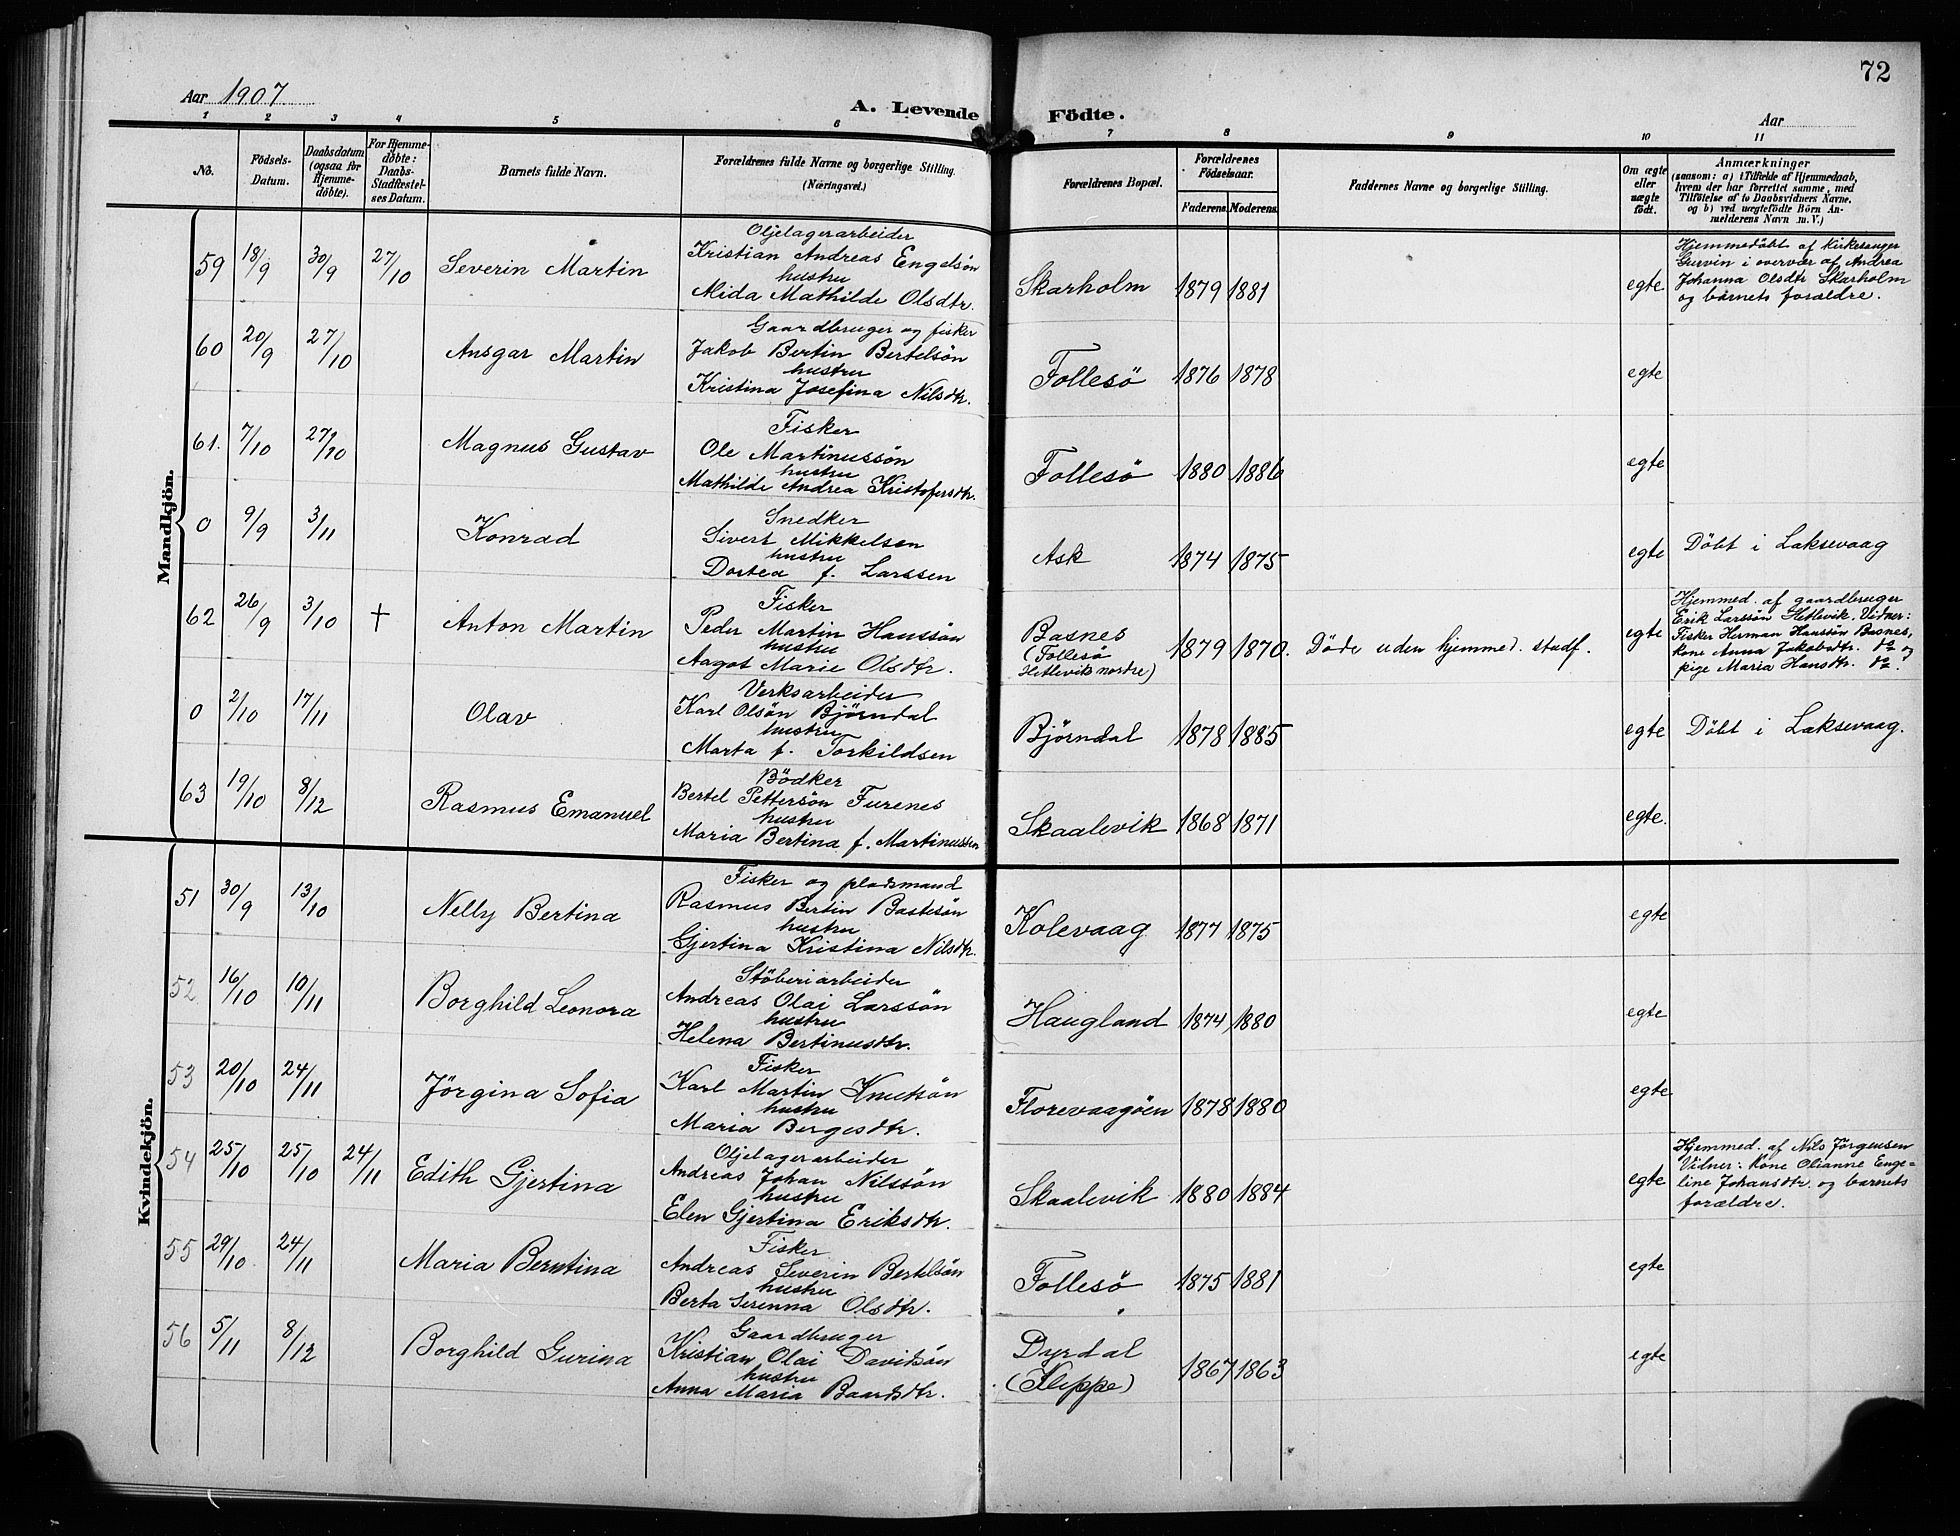 72
Aar 1907
A. Levende Födte.
Aar
1 2 3 4 5 6 7 8 9 10 11
No.
Födsels-
Datum.
Daabsdatum
(ogsaa for
Hjemme-
döbte).
For Hjemme-
döbte:
Daabs-
Stadfæstel-
ses Datum.
Barnets fulde Navn.
Forældrenes fulde Navne og borgerlige Stilling.
(Næringsvei.)
Forældrenes Bopæl.
Forældrenes
Födselsaar.
Faderens. Moderens.
Faddernes Navne og borgerlige Stilling.
Om ægte
eller
uægte
født.
Anmærkninger
(saasom: a) i Tilfælde af Hjemmedaab,
hvem der har forrettet samme, med
Tilføielse af to Daabsvidners Navne,
og b) ved uægtefödte Börn An-
melderens Navn m. V.)
Mandkjön.
59 18/9 30/9 27/10 Severin Martin
Oljelagerarbeider
Kristian Andreas Engelsön
hustru
Mida Mathilde Olsdtr.
Skarholm 1879 1881 egte
Hjemmedöbt af Kirkesanger
Gurvin i overvær af Andrea
Johanna Olsdtr Skarholm
og barnets forældre.
60 20/9 27/10 Ansgar Martin
Gaardbruger og fisker
Jakob Bertin Bertelsön
hustru
Kristina Josefina Nilsdtr.
Follesö 1876 1878 egte
61. 7/10 27/10 Magnus Gustav
Fisker
Ole Martinussön
hustru
Mathilde Andrea Kristofersdtr.
Follesö 1880 1886 egte
0 9/9 3/11 Konrad
Snedker
Sivert Mikkelsen
hustru
Dortea f. Larssen
Ask 1874 1875 egte Döbt i Laksevaag
62 26/9 3/10 † Anton Martin
Fisker
Peder Martin Hanssön
hustru
Aagot Marie Olsdtr.
Basnes
(Follesö
Hetlevik nordre)
1879 1870. Döde uden hjemmed. stadf. egte
Hjemmed. af gaardbruger
Erik Larssön Hetlevik. Vidner:
Fisker Herman Hanssön Basnes,
kone Anna Jakobsdtr. do og
pige Maria Hansdtr. do.
0 2/10 17/11 Olav
Verksarbeider
Karl Olsön Björndal
hustru
Marta f. Torkildsen
Björndal 1878 1885 egte Döbt i Laksevaag.
63 19/10 8/12 Rasmus Emanuel
Bödker
Bertel Pettersön Furenes
hustru
Maria Bertina f. Martinussen
Skaalevik 1868 1871 egte.
Kvindekjön.
51 30/9 13/10 Nelly Bertina
Fisker og pladsmand
Rasmus Bertin Bastesön
hustru
Gjertina Kristina Nilsdtr.
Kolevaag 1877 1875 egte
52 16/10 10/11 Borghild Leonora
Stöberiarbeider
Andreas Olai Larssön
hustru
Helena Bertinusdtr.
Haugland 1874 1880 egte
53 20/10 24/11 Jörgina Sofia
Fisker
Karl Martin Knutsön
hustru
Maria Bergesdtr.
Florevaagöen 1878 1880 egte
54 25/10 25/10 24/11 Edith Gjertina
Oljelagerarbeider
Andreas Johan Nilssön
hustru
Elen Gjertina Eriksdtr.
Skaalevik 1880 1884 egte
Hjemmed. af Nils Jörgensen
Vidner: Kone Olianne Enge-
line Johansdtr. og barnets
forældre.
55 29/10 24/11 Maria Berntina
Fisker
Andreas Severin Bertelsön
hustru
Berta Serenna Olsdtr.
Follesö 1875 1881 egte
56 5/11 8/12 Borghild Gurina
Gaardbruger
Kristian Olai Davidsön
hustru
Anna Maria Baardsdtr.
Dyrdal
(Kleppe)
1867 1863 egte